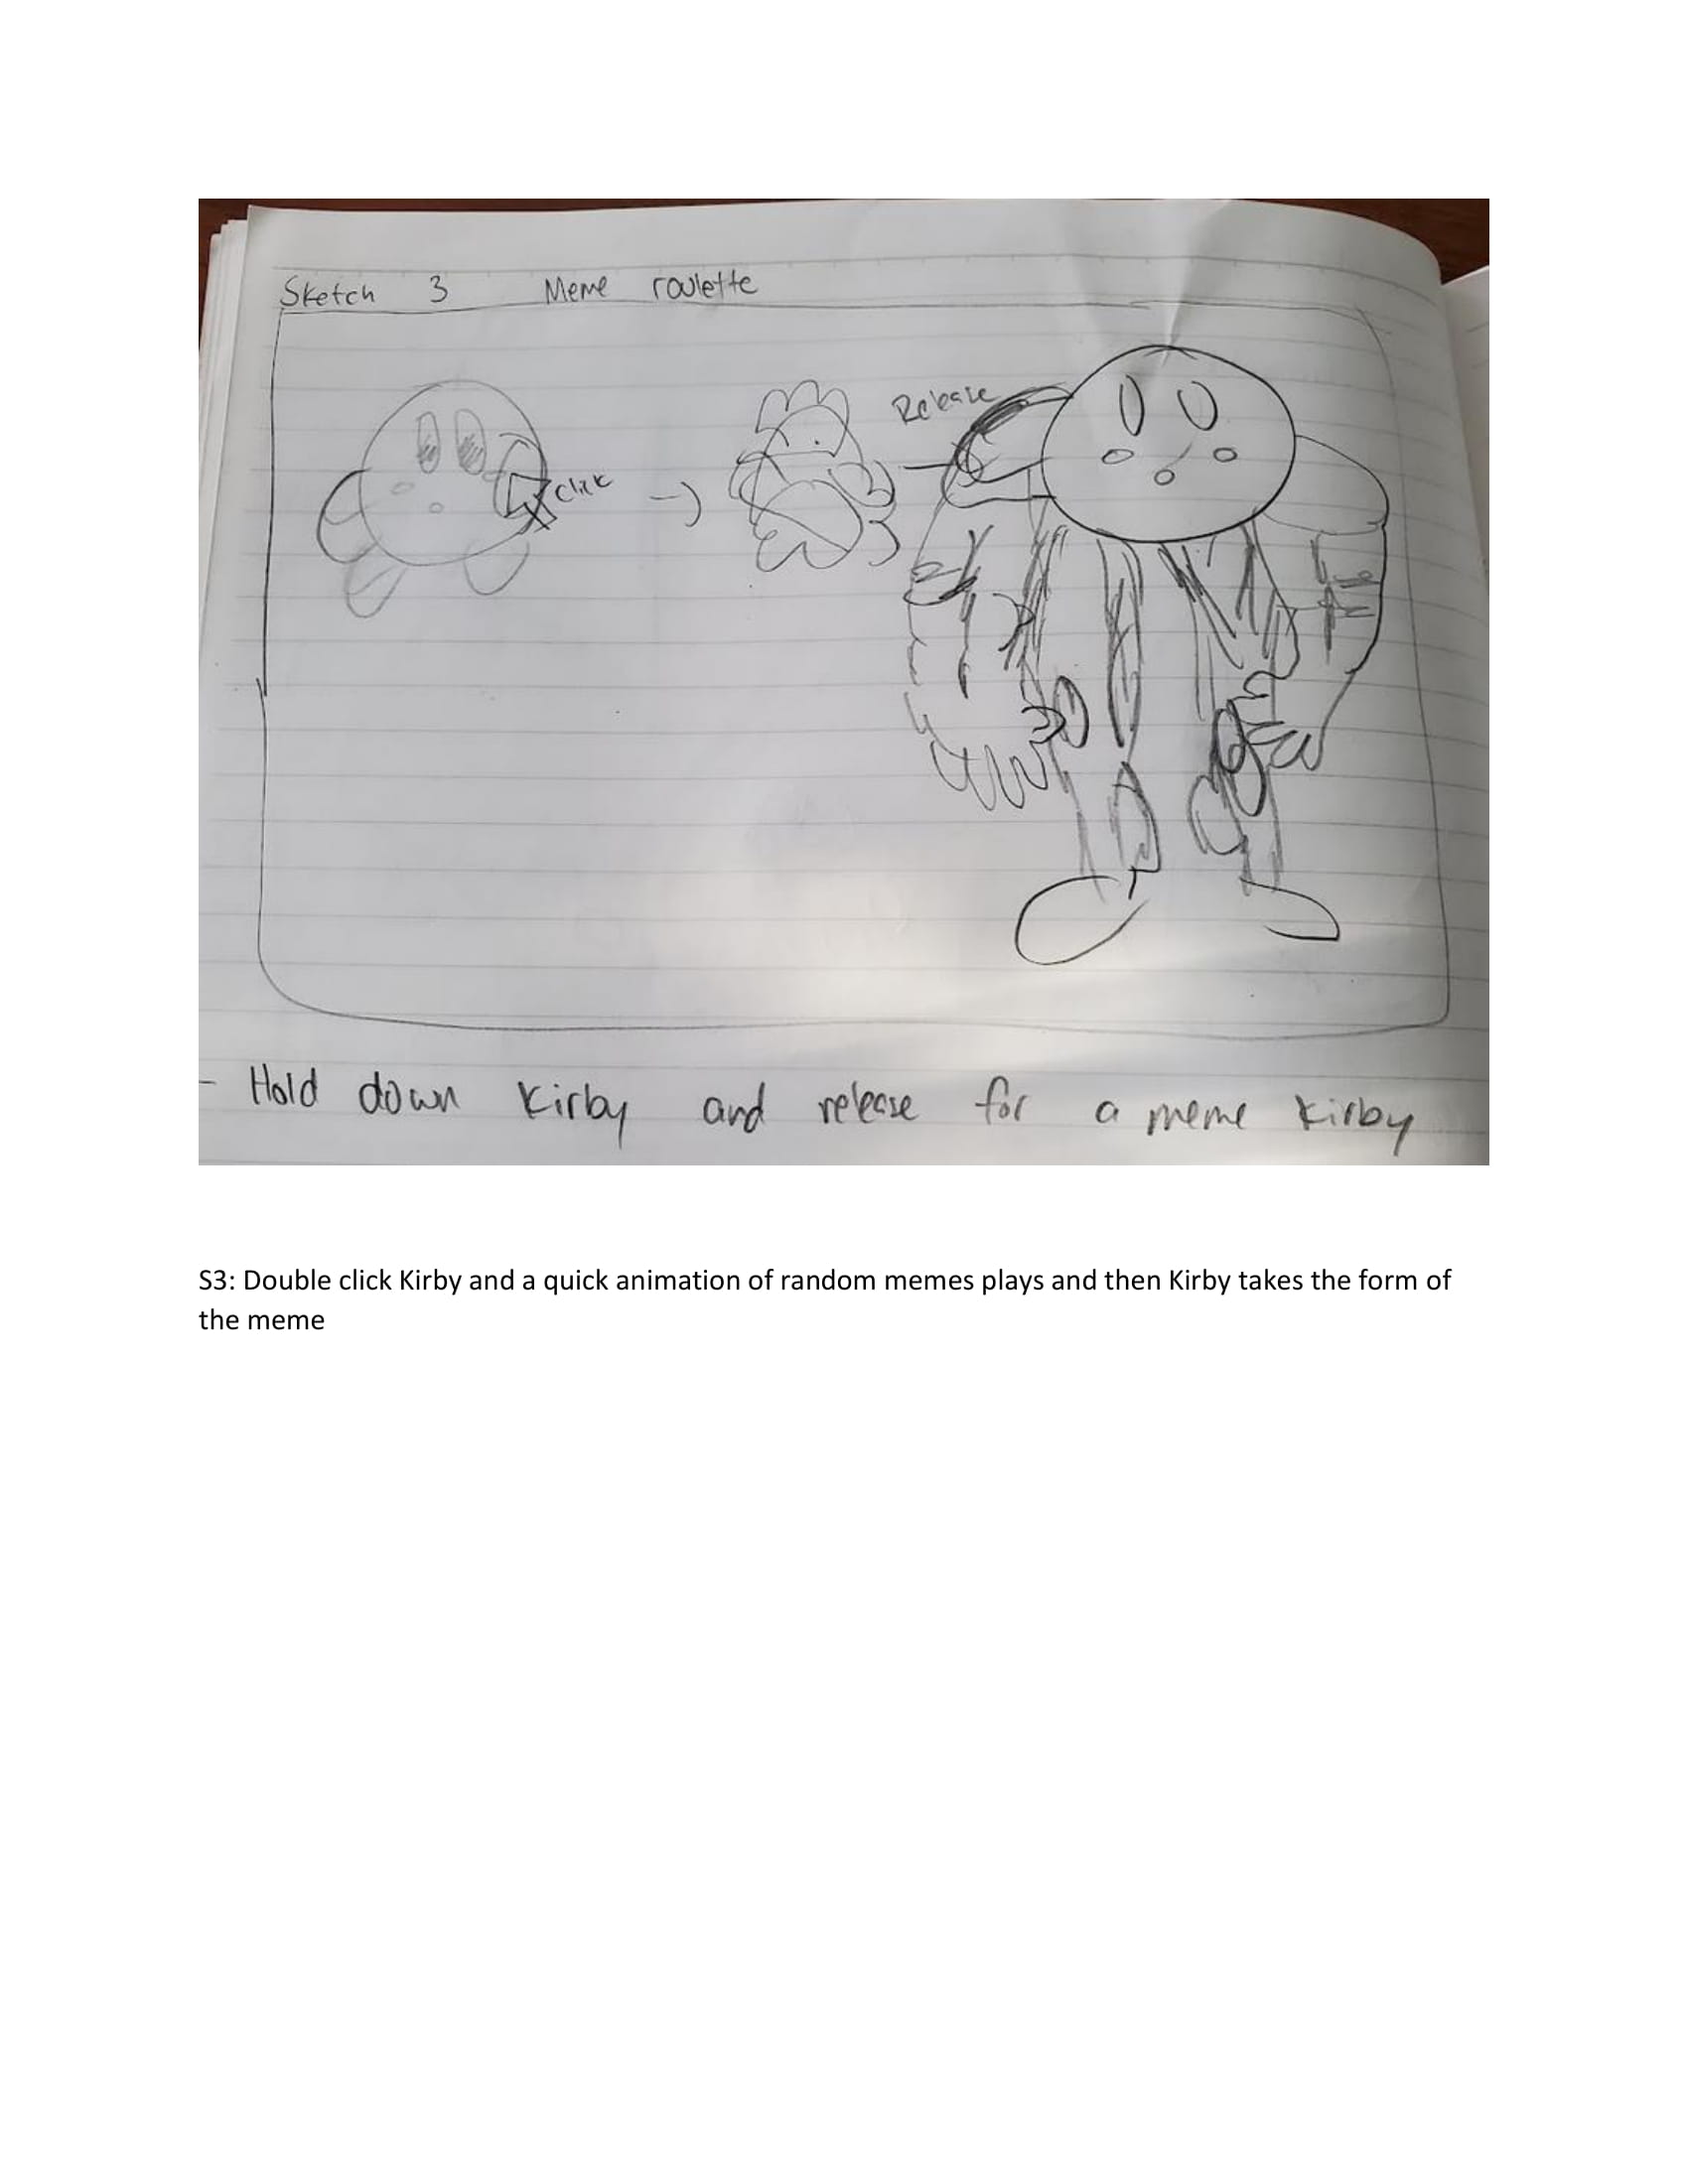 Sketch 3 Meme roulette
Click
Release
- Hold down Kirby and release for a meme Kirby
S3: Double click Kirby and a quick animation of random memes plays and then Kirby takes the form of
the meme